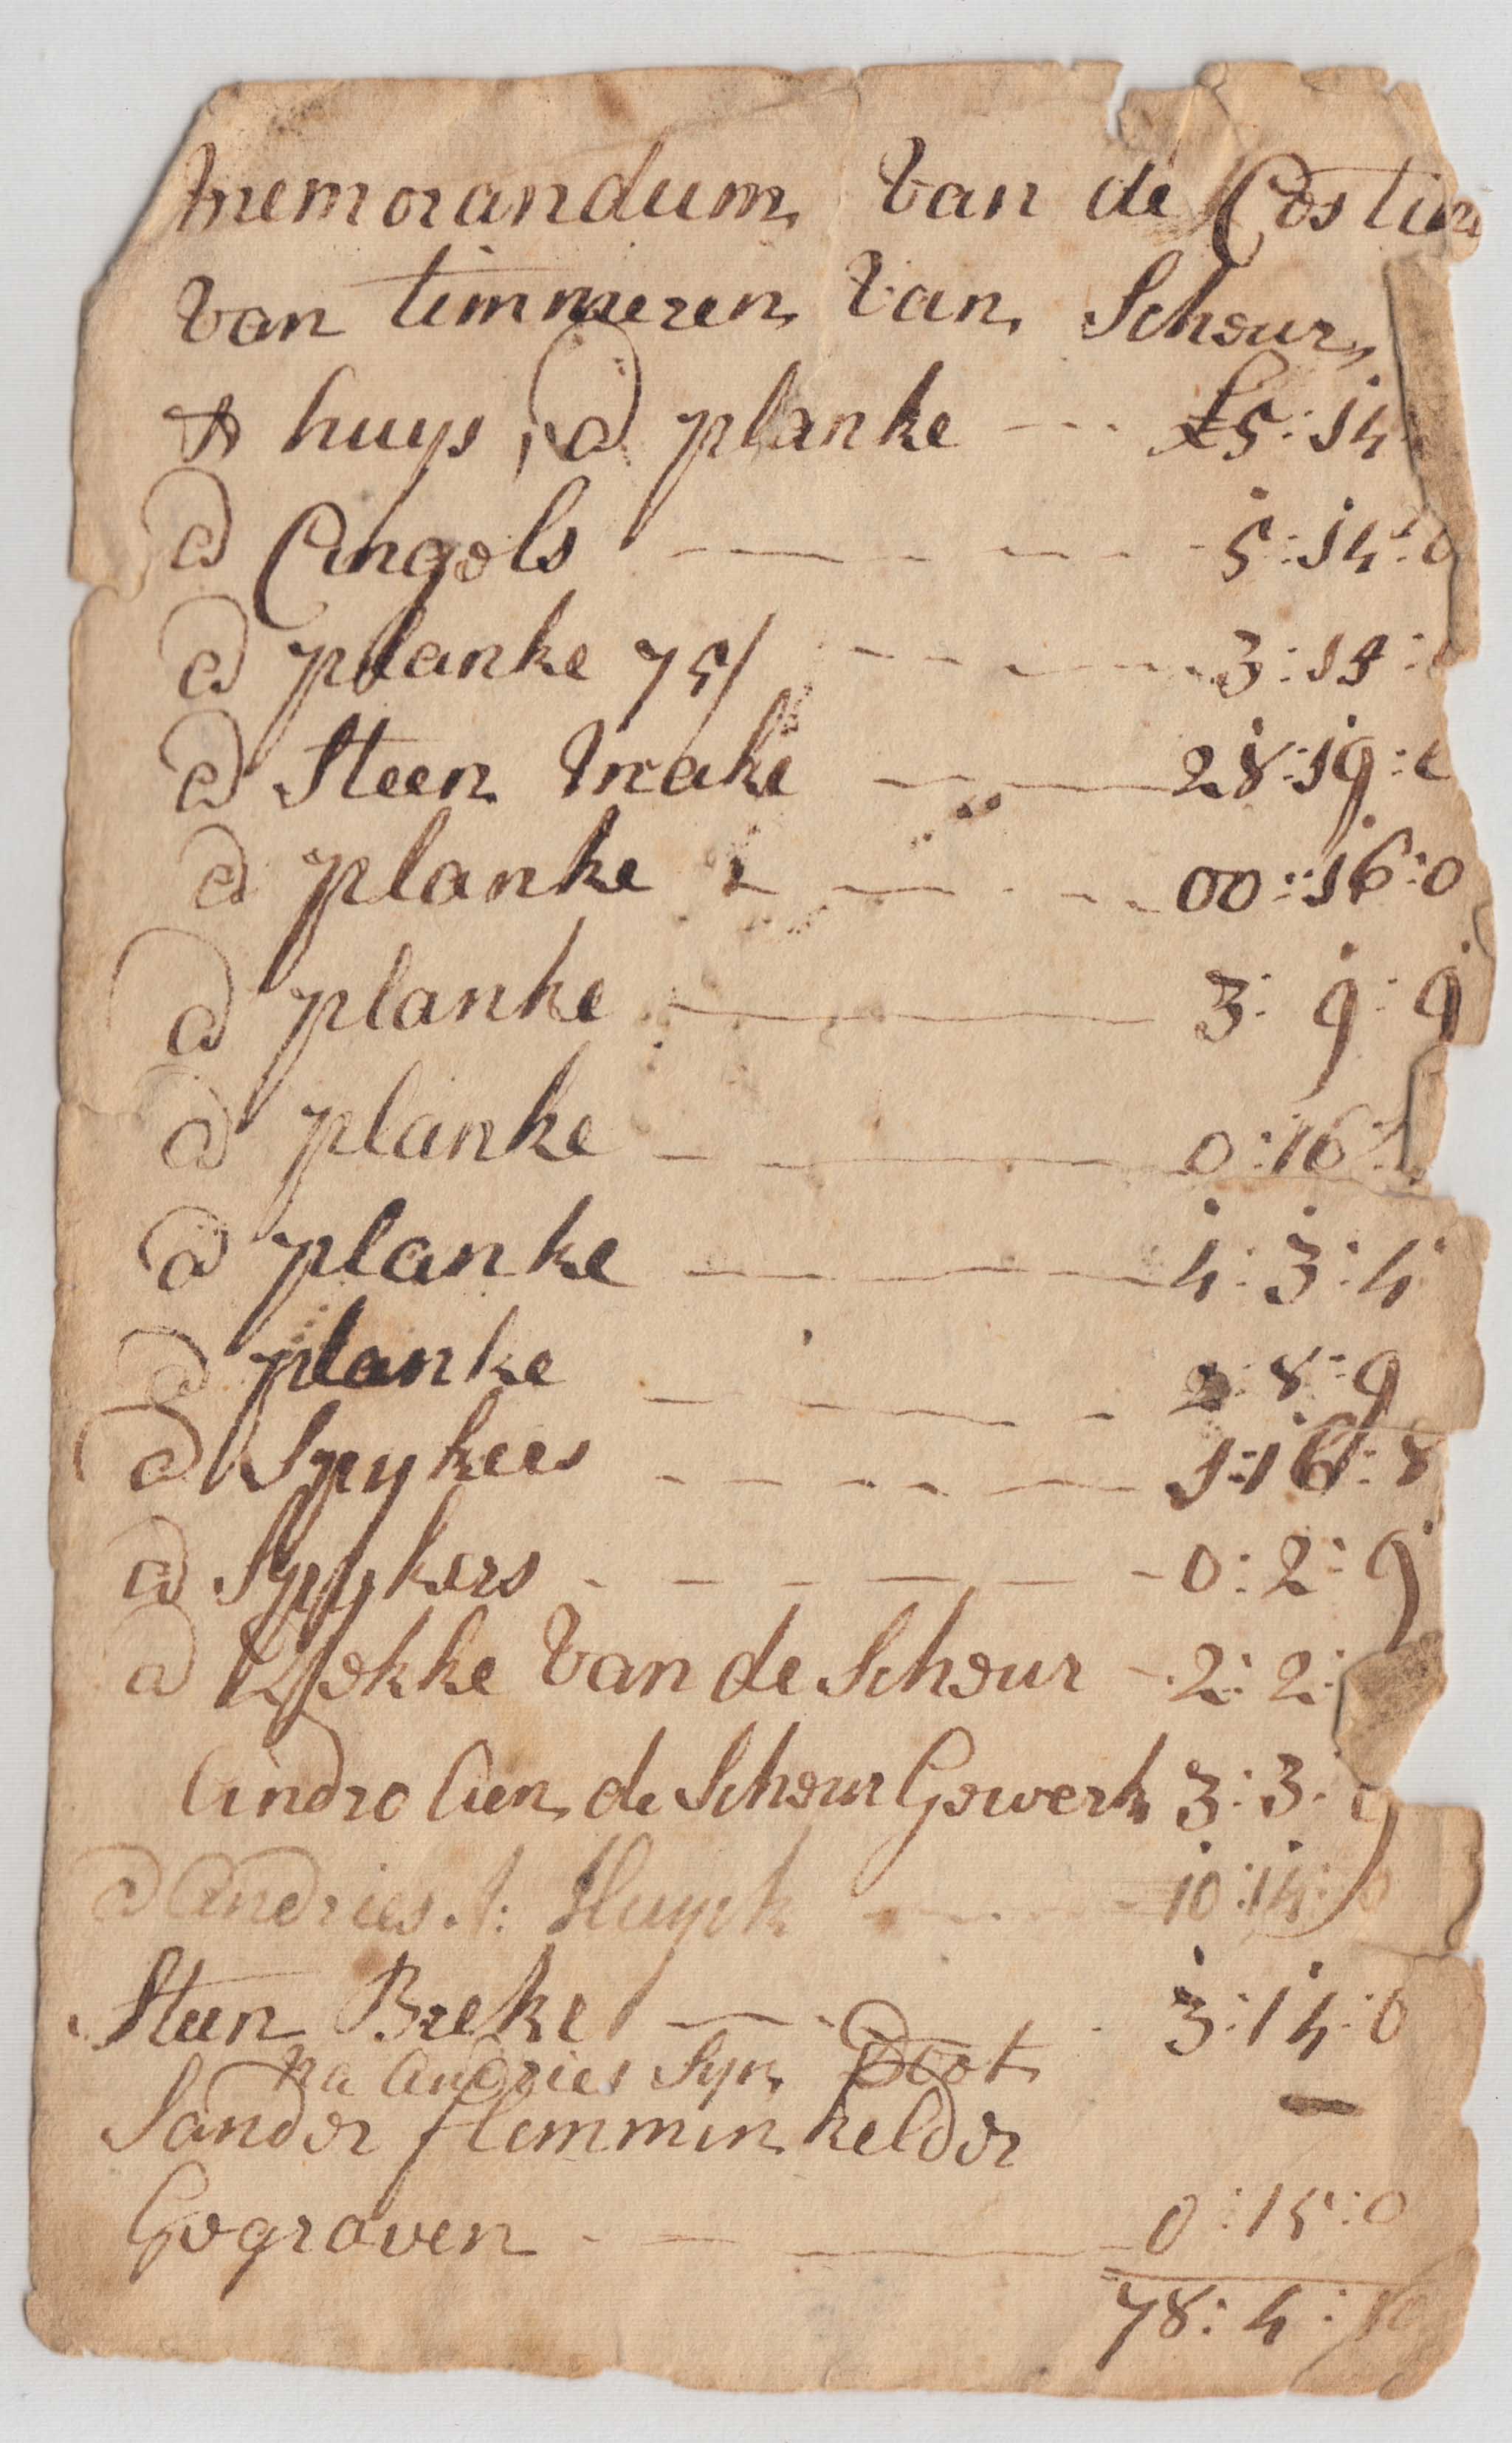 memorandum van de Costen
van timmeren van Schour
& huys, @ planke --- £5:14
@ Cingols --- 5:14:0
@ planke 75/ --- 3:15:
@ Steen make --- 28:19:
@ planke --- 00:16:0
@ planke --- 3:9:9
@ planke --- 0:16:
@ planke --- 4:3:4
@ planke --- 2:8:9
@ Spykers --- 1:16:8
@ Spykers --- 0:2:9
@ van de Schour - 2:2:
Andro Aen de Schour Gowerk 3:3:9
@ Andries J: Huyck --- 10:14:0
Steen Breke --- 3:14:0
na Andries Syn Doot
Sander flemmin kelder
Gograven --- 0:15:0
78:4:10